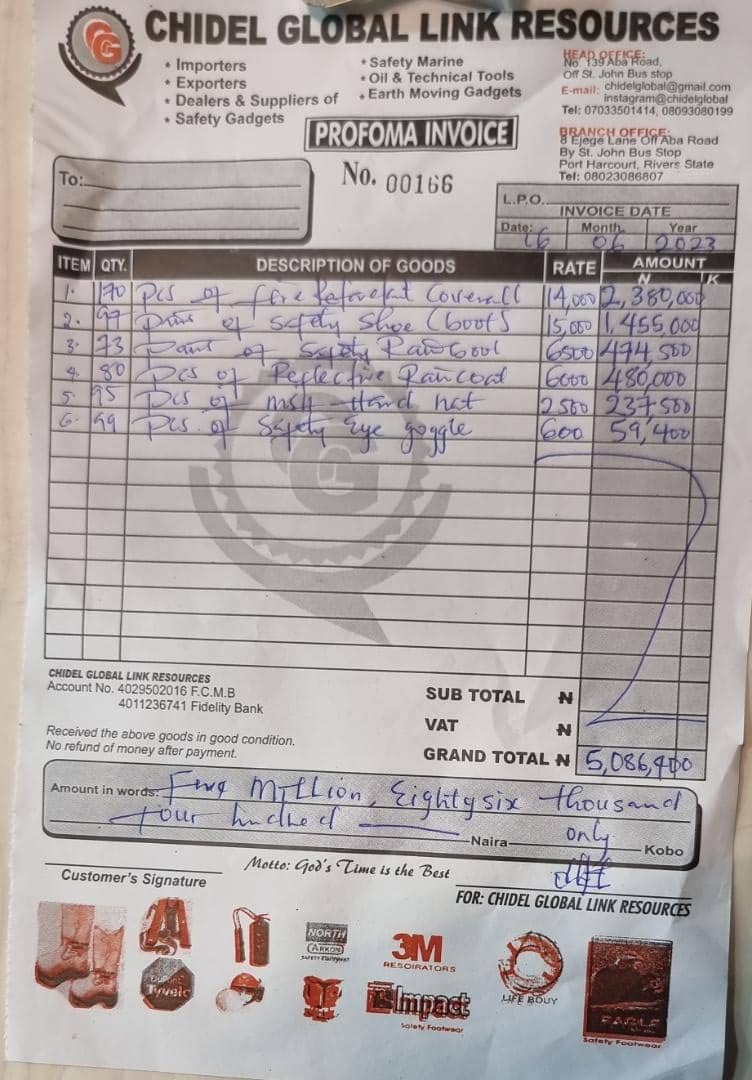 CHIDEL GLOBAL LINK RESOURCES
• Importers
• Exporters
• Dealers & Suppliers of
• Safety Gadgets
• Safety Marine
• Oil & Technical Tools
• Earth Moving Gadgets
HEAD OFFICE:
No. 139 Aba Road,
Off St. John Bus stop
E-mail: chidelglobal@gmail.com
instagram@chidelglobal
Tel: 07033501414, 08093080199
PROFOMA INVOICE
BRANCH OFFICE:
8 Ejege Lane Off Aba Road
By St. John Bus Stop
Port Harcourt, Rivers State
Tel: 08023086807
To:
No. 00166
L.P.O.
INVOICE DATE
Date: Month Year
16 06 2023
ITEM QTY. DESCRIPTION OF GOODS RATE AMOUNT
N K
1. 170 Pcs of fire Coverall 14,000 2,380,000
2. 97 Pairs of Safety Shoe (boot) 15,000 1,455,000
3. 73 Pairs of Safety Rainboot 6500 474,500
4. 80 Pcs of Reflective Raincoat 6000 480,000
5. 95 Pcs of MSA Hard hat 2500 237500
6. 99 Pcs. of Safety Eye goggle 600 59,400
CHIDEL GLOBAL LINK RESOURCES
Account No. 4029502016 F.C.M.B
4011236741 Fidelity Bank
SUB TOTAL ₦
VAT ₦
Received the above goods in good condition.
No refund of money after payment.
GRAND TOTAL ₦ 5,086,400
Amount in words: Five Million, Eighty six thousand
four hundred only
Naira Kobo
Customer's Signature
Motto: God's Time is the Best
FOR: CHIDEL GLOBAL LINK RESOURCES
NORTH
3M
RESOIRATORS
Tyvek
Impact
Safety Footwear
LIFE BOUY
EAGLE
Safety Footwear